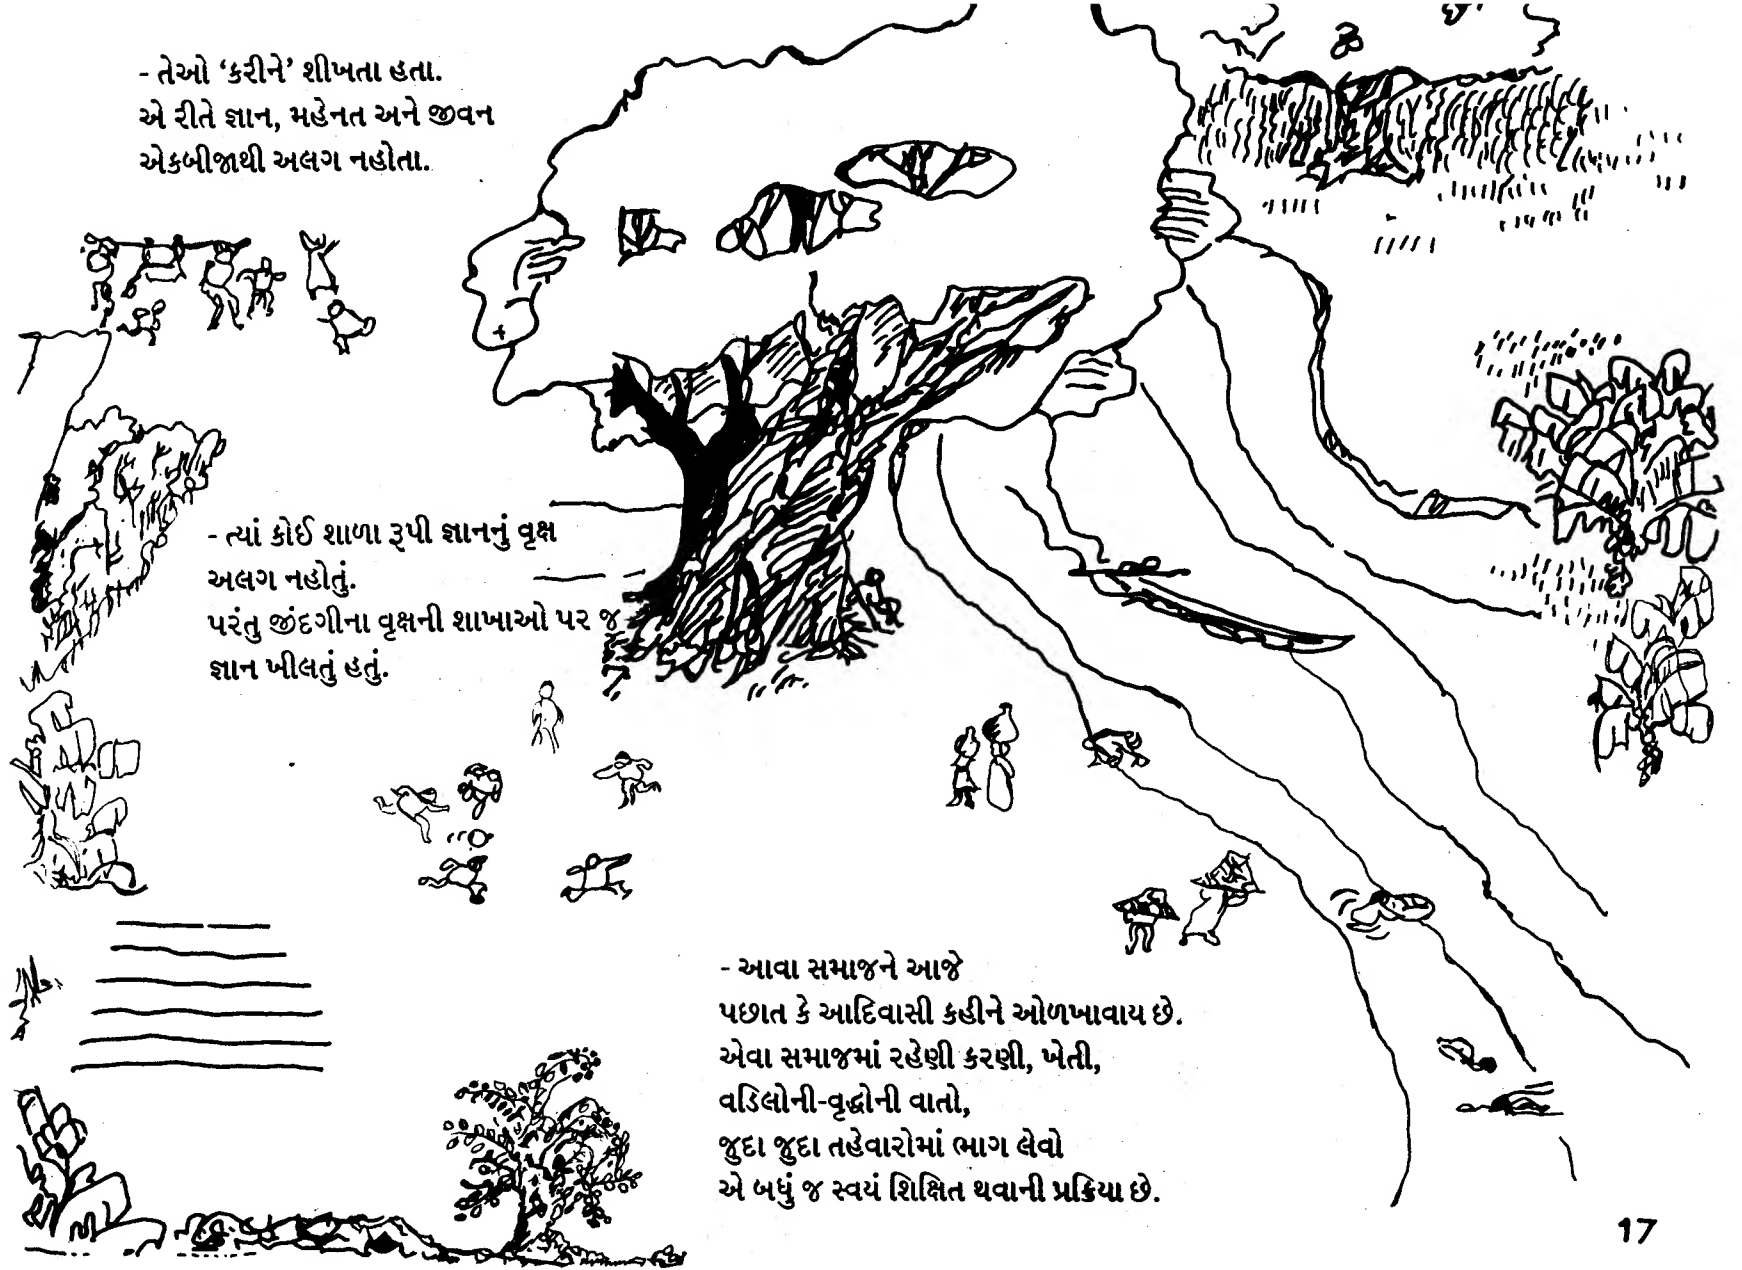 - તેઓ ‘કરીને’ શીખતા હતા.
એ રીતે જ્ઞાન, મહેનત અને જીવન
એકબીજાથી અલગ નહોતા.
- ત્યાં કોઈ શાળા રૂપી જ્ઞાનનું વૃક્ષ
અલગ નહોતું.
પરંતુ જીંદગીના વૃક્ષની શાખાઓ પર જ
જ્ઞાન ખીલતું હતું.
- આવા સમાજને આજે
પછાત કે આદિવાસી કહીને ઓળખાવાય છે.
એવા સમાજમાં રહેણી કરણી, ખેતી,
વડિલોની-વૃદ્ધોની વાતો,
જુદા જુદા તહેવારોમાં ભાગ લેવો
એ બધું જ સ્વયં શિક્ષિત થવાની પ્રક્રિયા છે.
17